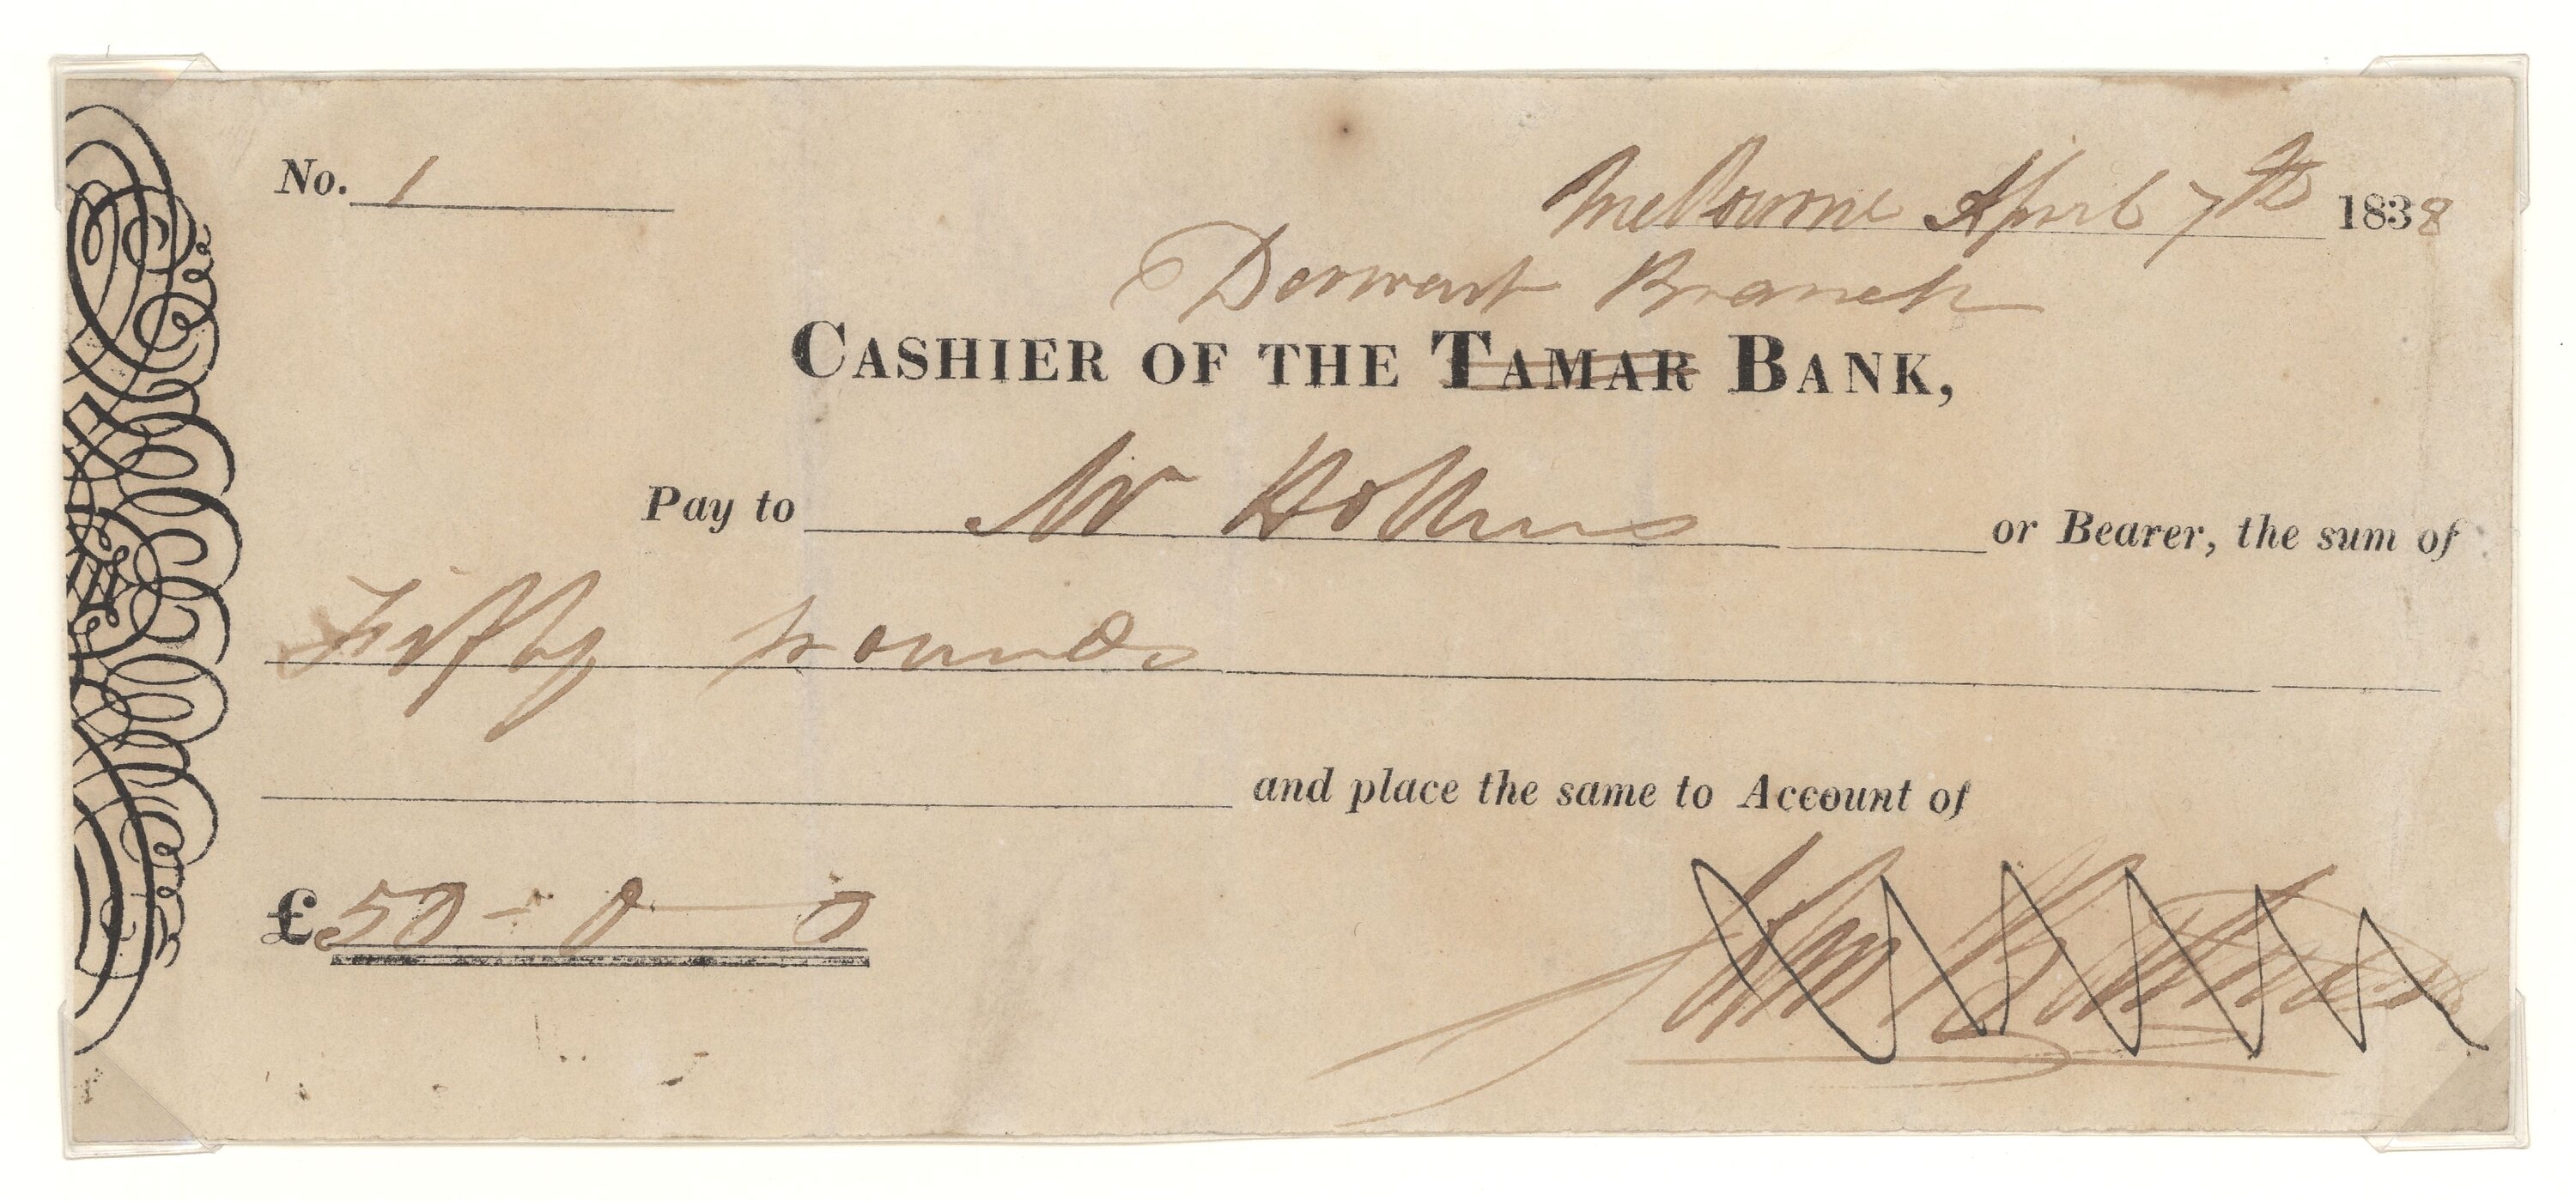 No. 1
Melbourne April 7th 1838
Derwent Branch
CASHIER OF THE TAMAR BANK,
Pay to Mr Hollins or Bearer, the sum of
Fifty pounds
and place the same to Account of
£50 - 0 — 0
John